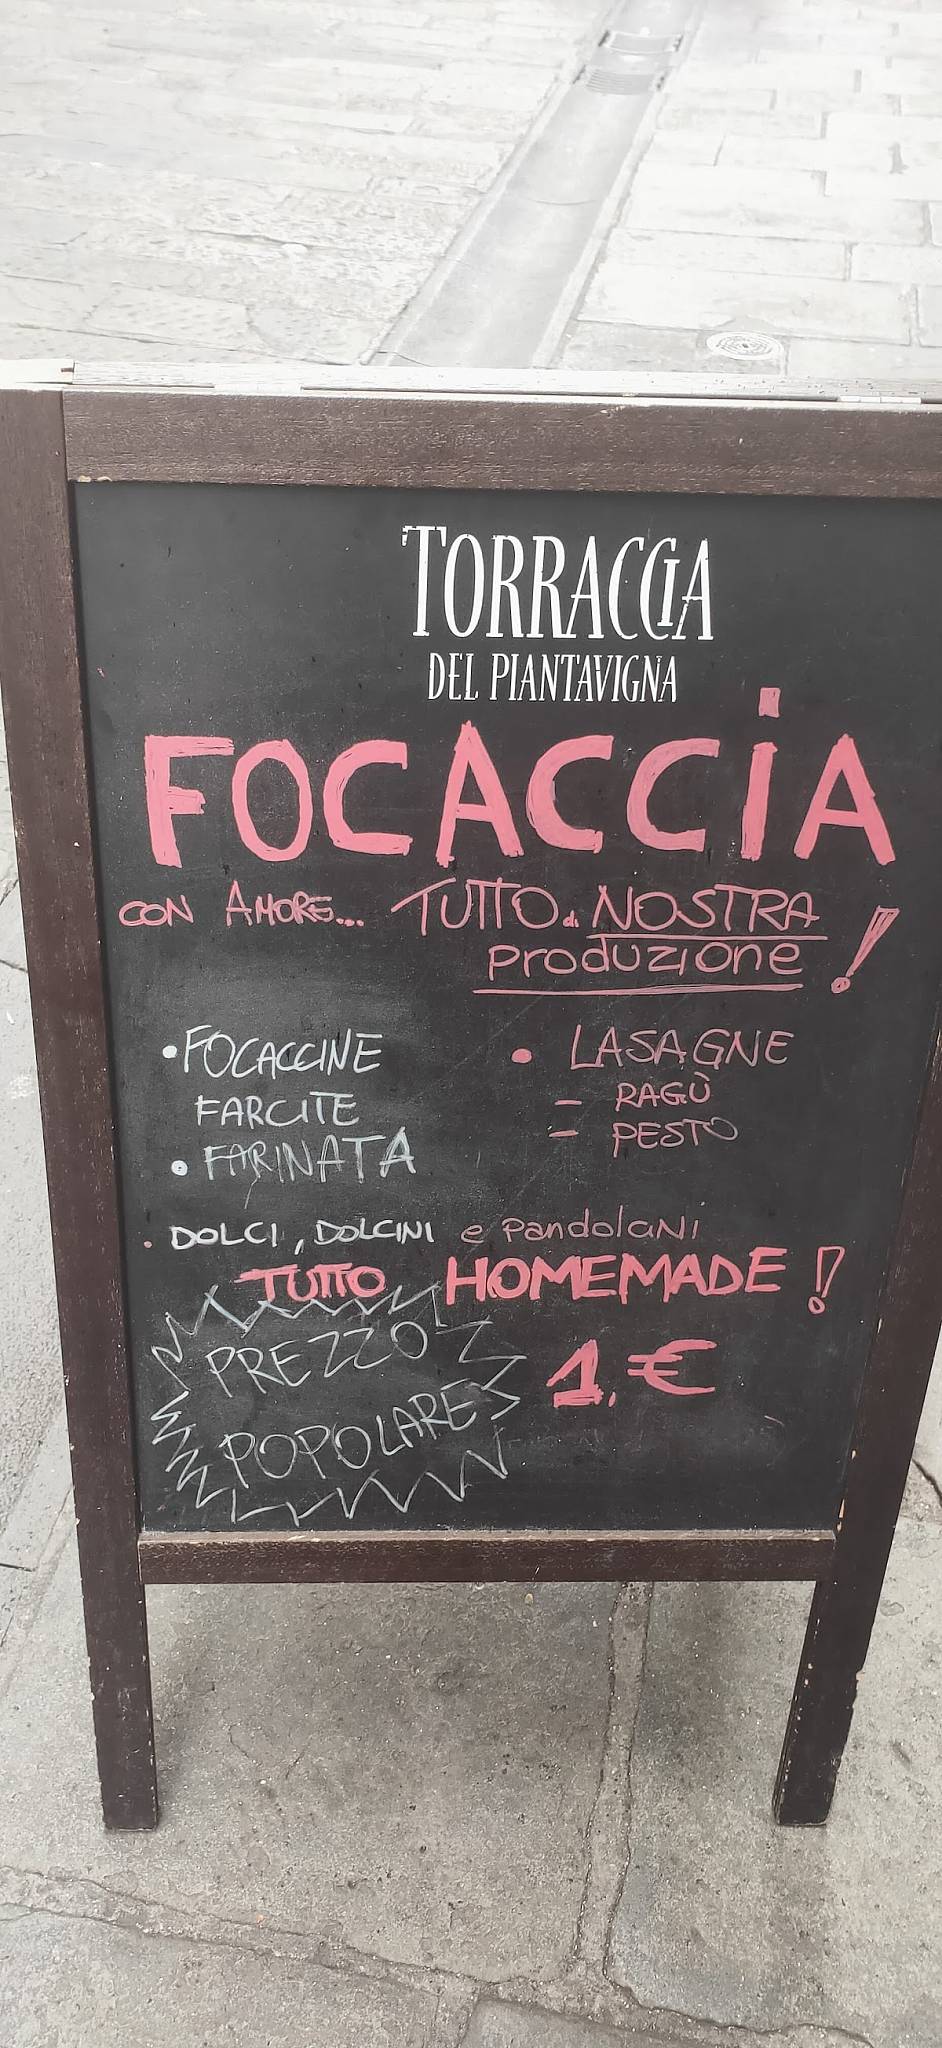 TORRACCIA
DEL PIANTAVIGNA
FOCACCIA
CON AMORE... TUTTO di NOSTRA
PRODUZIONE!
• FOCACCINE
FARCITE
• FARINATA
• LASAGNE
- RAGÙ
- PESTO
• DOLCI, DOLCINI e PandolcINI
TUTTO HOMEMADE!
PREZZO
POPOLARE
1.€